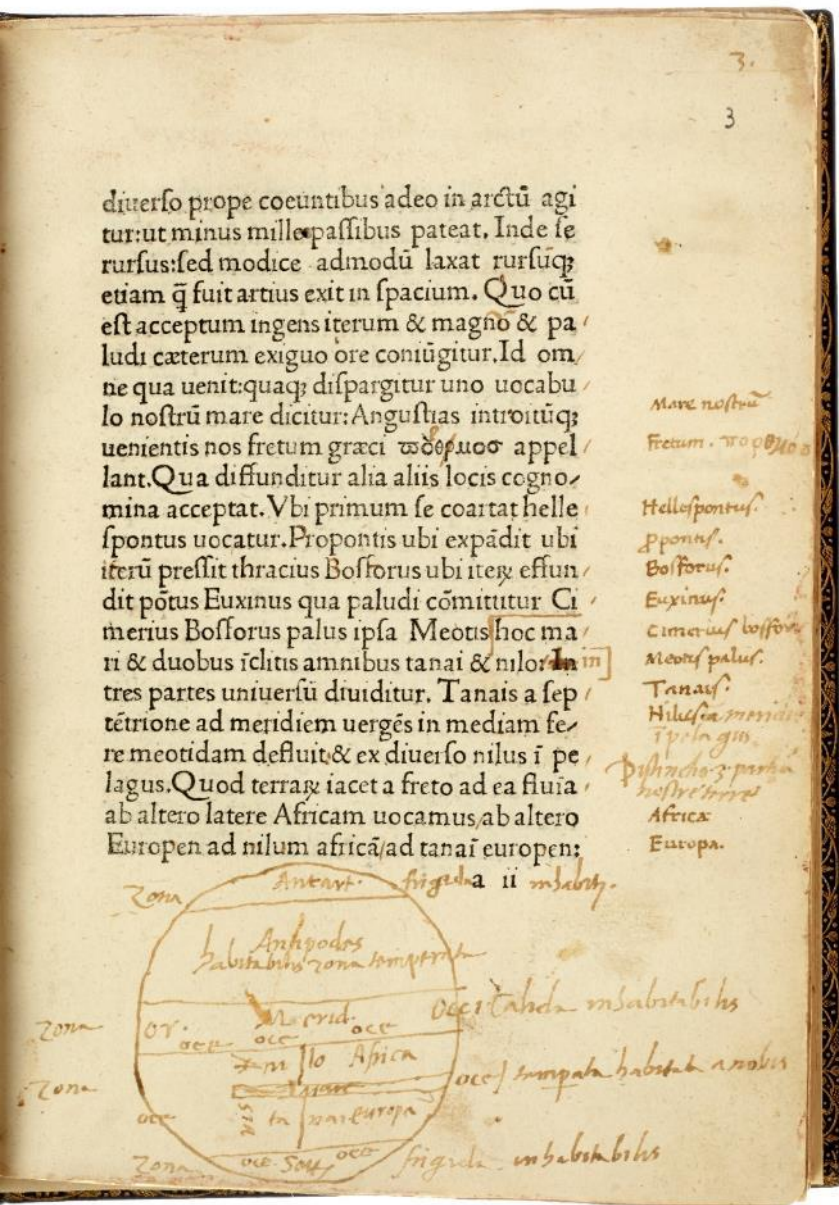 3.
3
diuerſo prope coeuntibus adeo in arctū agi
tur:ut minus mille paſſibus pateat. Inde ſe
rurſus:ſed modice admodū laxat rurſūqꝫ
etiam q̄ fuit artius exit in ſpacium. Quo cū
eſt acceptum ingens iterum & magno & pa
ludi cæterum exiguo ore coniūgitur. Id om
ne qua uenit:quaqꝫ diſpargitur uno uocabu
lo noſtrū mare dicitur: Anguſtias introitūqꝫ
uenientis nos fretum græci appel
lant. Qua diffunditur alia aliis locis cogno
mina acceptat. Vbi primum ſe coartat helle
ſpontus uocatur. Propontis ubi expādit ubi
iterū preſſit thracius Boſforus ubi iteꝝ effun
dit pōtus Euxinus qua paludi cōmittitur Ci
merius Boſforus palus ipſa Meotis hoc ma
ri & duobus īclitis amnibus tanai & nilo: In
tres partes uniuerſū diuiditur. Tanais a ſep
tētrione ad meridiem uergēs in mediam fe
re meotidam defluit & ex diuerſo nilus ī pe
lagus. Quod terraꝝ iacet a freto ad ea fluia
ab altero latere Africam uocamus/ab altero
Europen ad nilum africā/ad tanaī europen:
a ii
Mare noſtrū
Fretum. πορθμοσ
Helleſpontus.
ꝓpontis.
Boſforus.
Euxinus.
Cimerius boſfor
Meotis palus.
Tanais.
Nilus a meridie
ī pelagus
Diſtinctio 3 partiū
noſtre terre
Africa
Europa.
Zona Antart. frigida inhabit.
Antipodes
habitabilis zona temperata
Zona or. Merid. occi Calida inhabitabilis
oce oce oce
Africa
Zona oce temperata habitata a nobis
oce europa
Zona oce oce frigida inhabitabilis